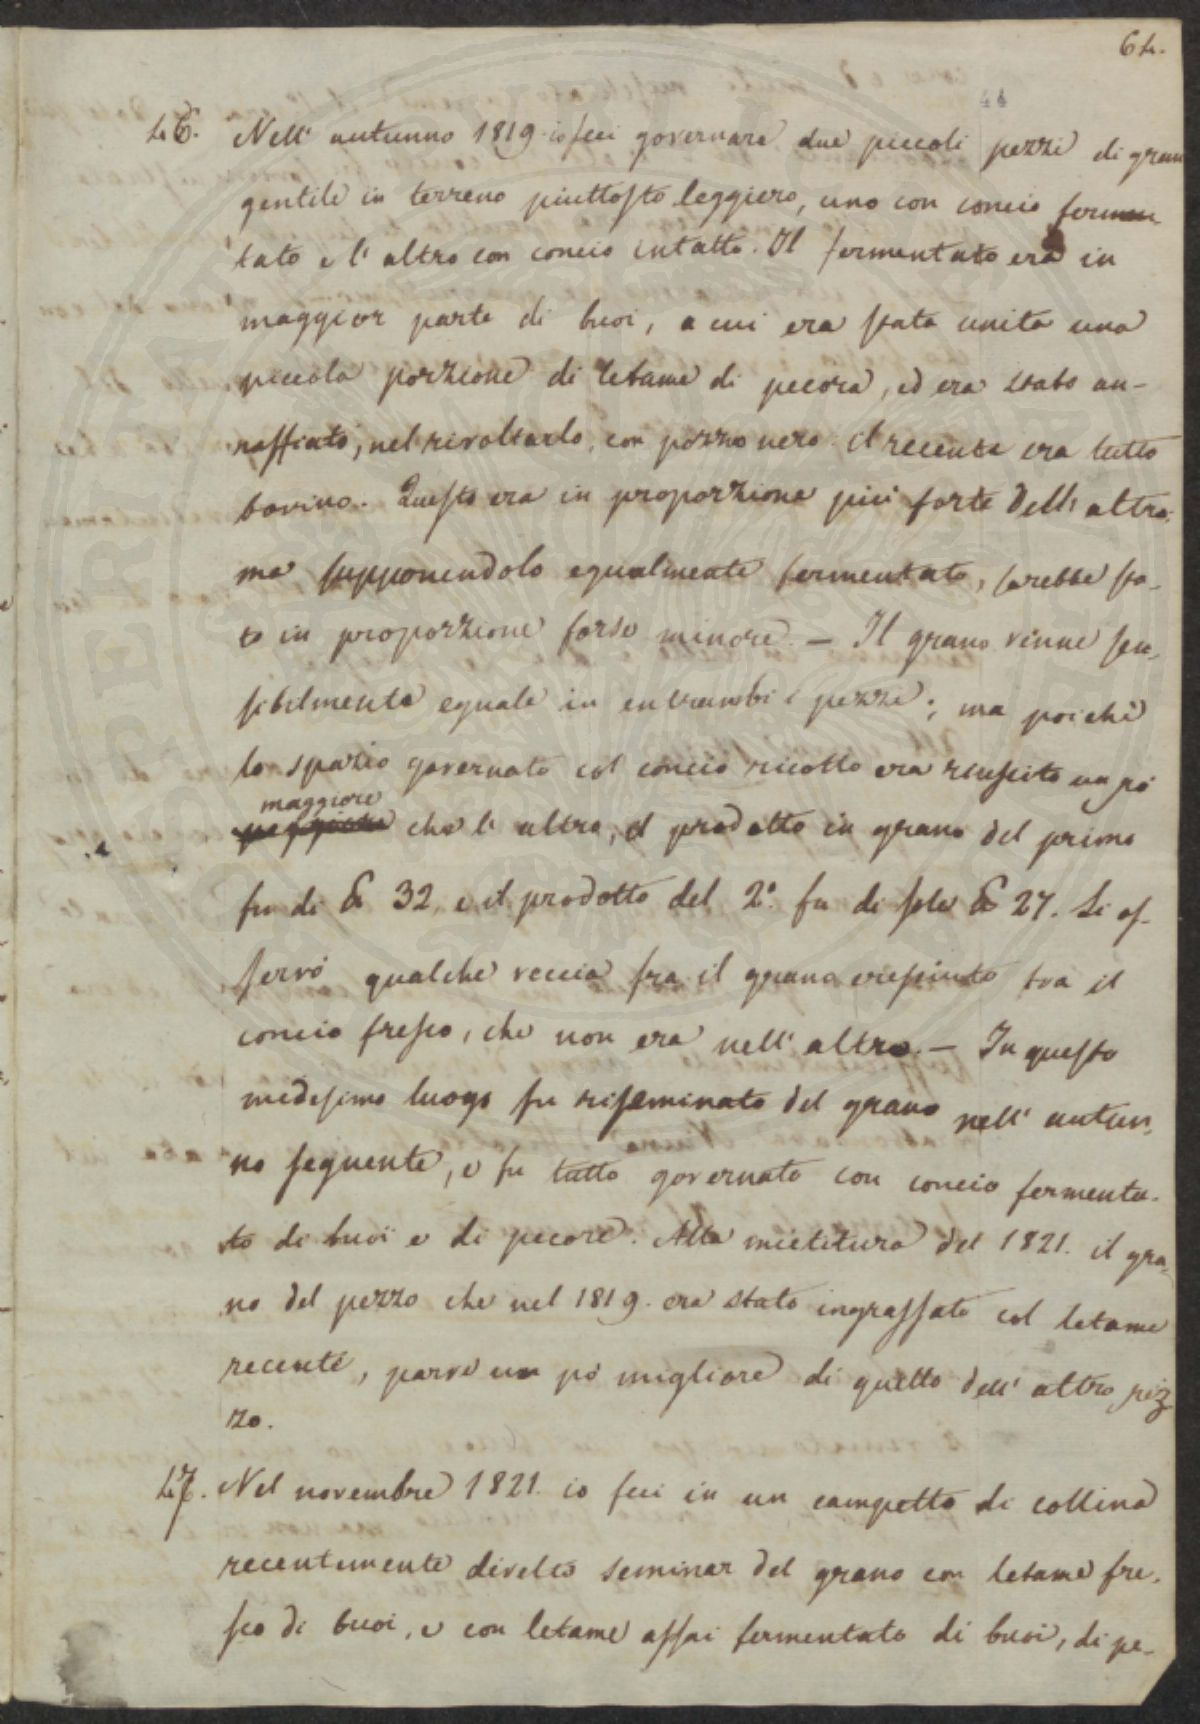 64.
48
46. Nell' autunno 1819 io feci governare due piccoli pezzi di gran
gentile in terreno piuttosto leggiero, uno con concio fermen-
tato e l' altro con concio intatto. Il fermentato era in
maggior parte di buoi, a cui era stata unita una
piccola porzione di letame di pecora, ed era stato an-
naffiato, nel rivoltarlo, con pozzo nero. il recente era tutto
bovino. Questo era in proporzione più forte dell' altro,
ma supponendolo egualmente fermentato, sarebbe sta-
to in proporzione forse minore. — Il grano venne sen-
sibilmente eguale in entrambi i pezzi; ma poichè
lo spazio governato col concio ricotto era riuscito un pò
maggiore
che l' altro, il prodotto in grano del primo
fu di 32, e il prodotto del 2.º fu di sole 27. Si os-
servò qualche veccia fra il grano cresciuto tra il
concio fresco, che non era nell' altro. — In questo
medesimo luogo fu riseminato del grano nell' autun-
no seguente, e fu tutto governato con concio fermenta-
to di buoi e di pecore. Alla mietitura del 1821. il gra-
no del pezzo che nel 1819. era stato ingrassato col letame
recente, parve un pò migliore di quello dell' altro pez-
zo.
47. Nel novembre 1821. io feci in un campetto di collina
recentemente divelto seminar del grano con letame fre-
sco di buoi, e con letame assai fermentato di buoi, di pe-